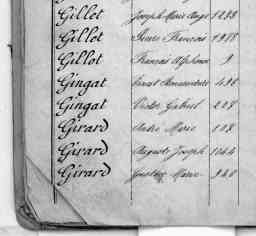 Gillet Joseph Marie Ange 1288
Gillet François 1988
Gillot François Alphonse 9
Gingat 498
Gingat Victor Gabriel 228
Girard André Marie 108
Girard Auguste Joseph 1044
Girard Gustave Marie 948